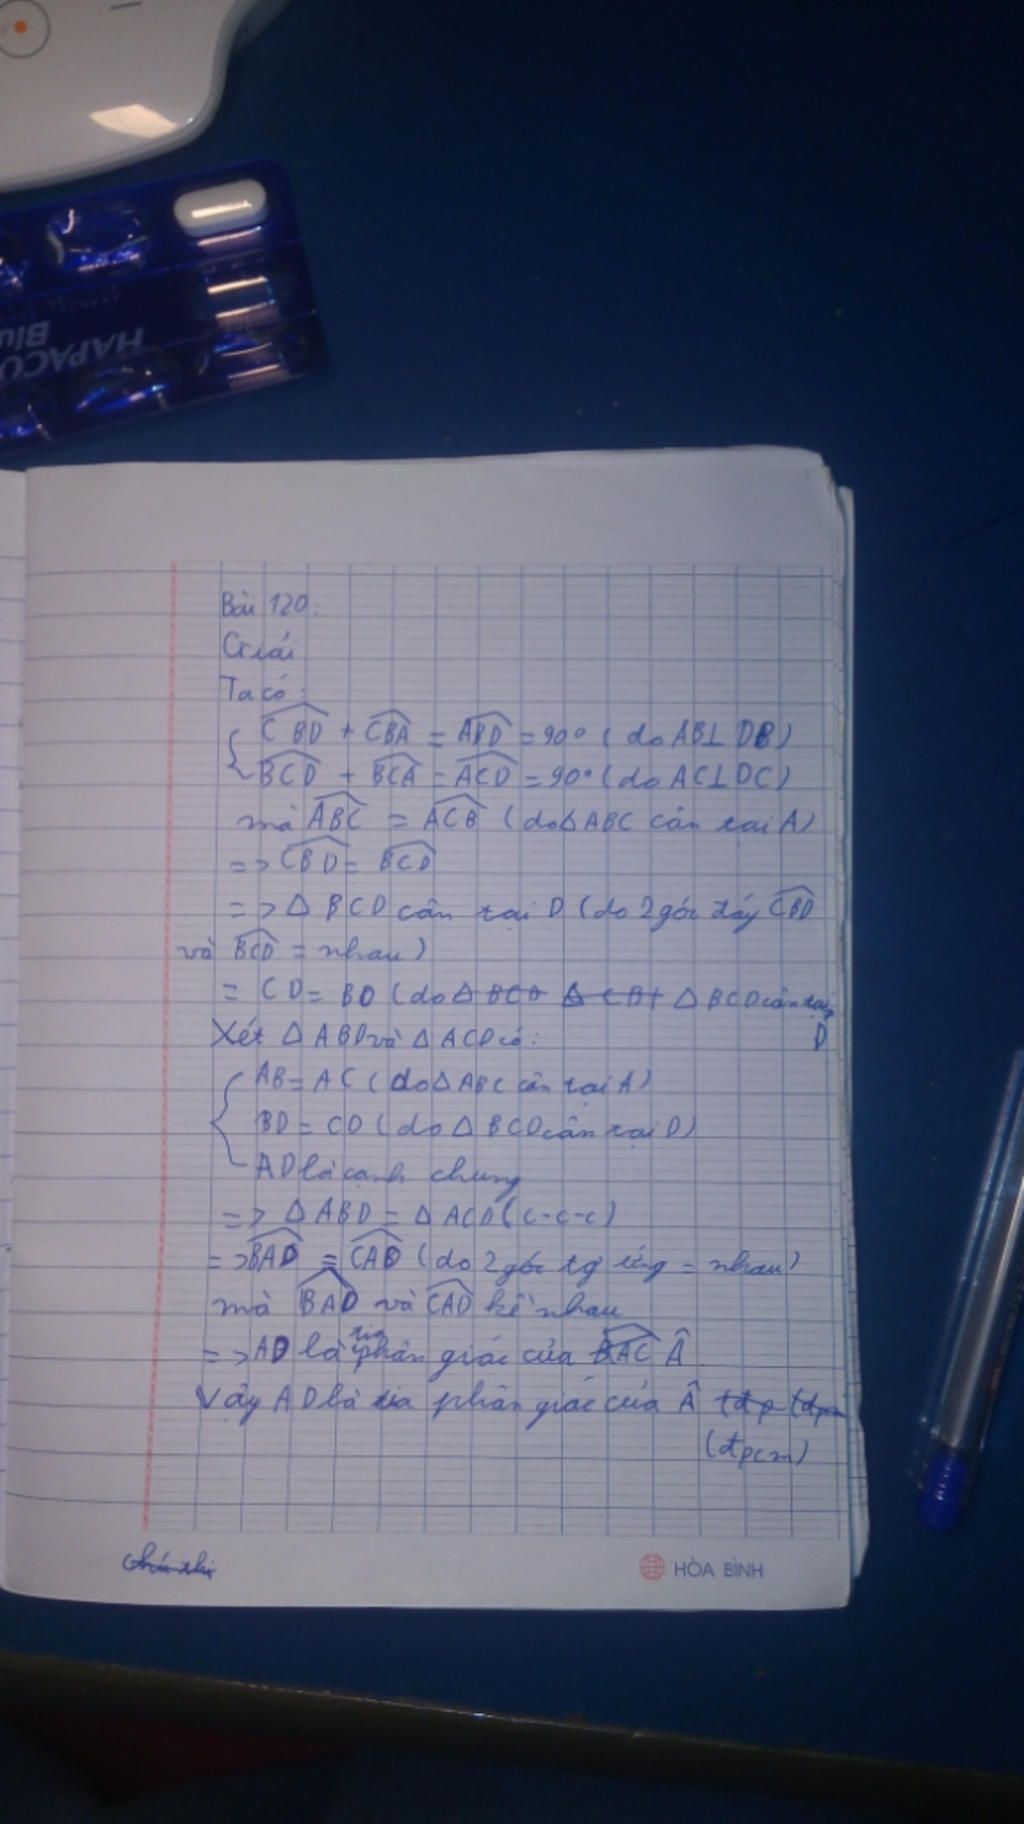 HAPACO
Blu
Bài 120:
Giải
Ta có:
CBD + CBA = ABD = 90° ( do AB⊥ DB)
BCD + BCA = ACD = 90° (do AC⊥DC)
mà ABC = ACB (do Δ ABC cân tại A)
=> CBD = BCD
=> Δ BCD cân tại D (do 2 góc đáy CBD
và BCD = nhau)
= CD = BD (do Δ BCD Δ CBD Δ BCD cân tại
D
Xét Δ ABD và Δ ACD có:
AB = AC (do Δ ABC cân tại A)
BD = CD (do Δ BCD cân tại D)
AD là cạnh chung
=> Δ ABD = Δ ACD (c-c-c)
=> BAD = CAD (do 2 góc tg ứng = nhau)
mà BAD và CAD kề nhau
=> AD là tia phân giác của BAC Â
Vậy AD là tia phân giác của Â
(đpcm)
HÒA BÌNH